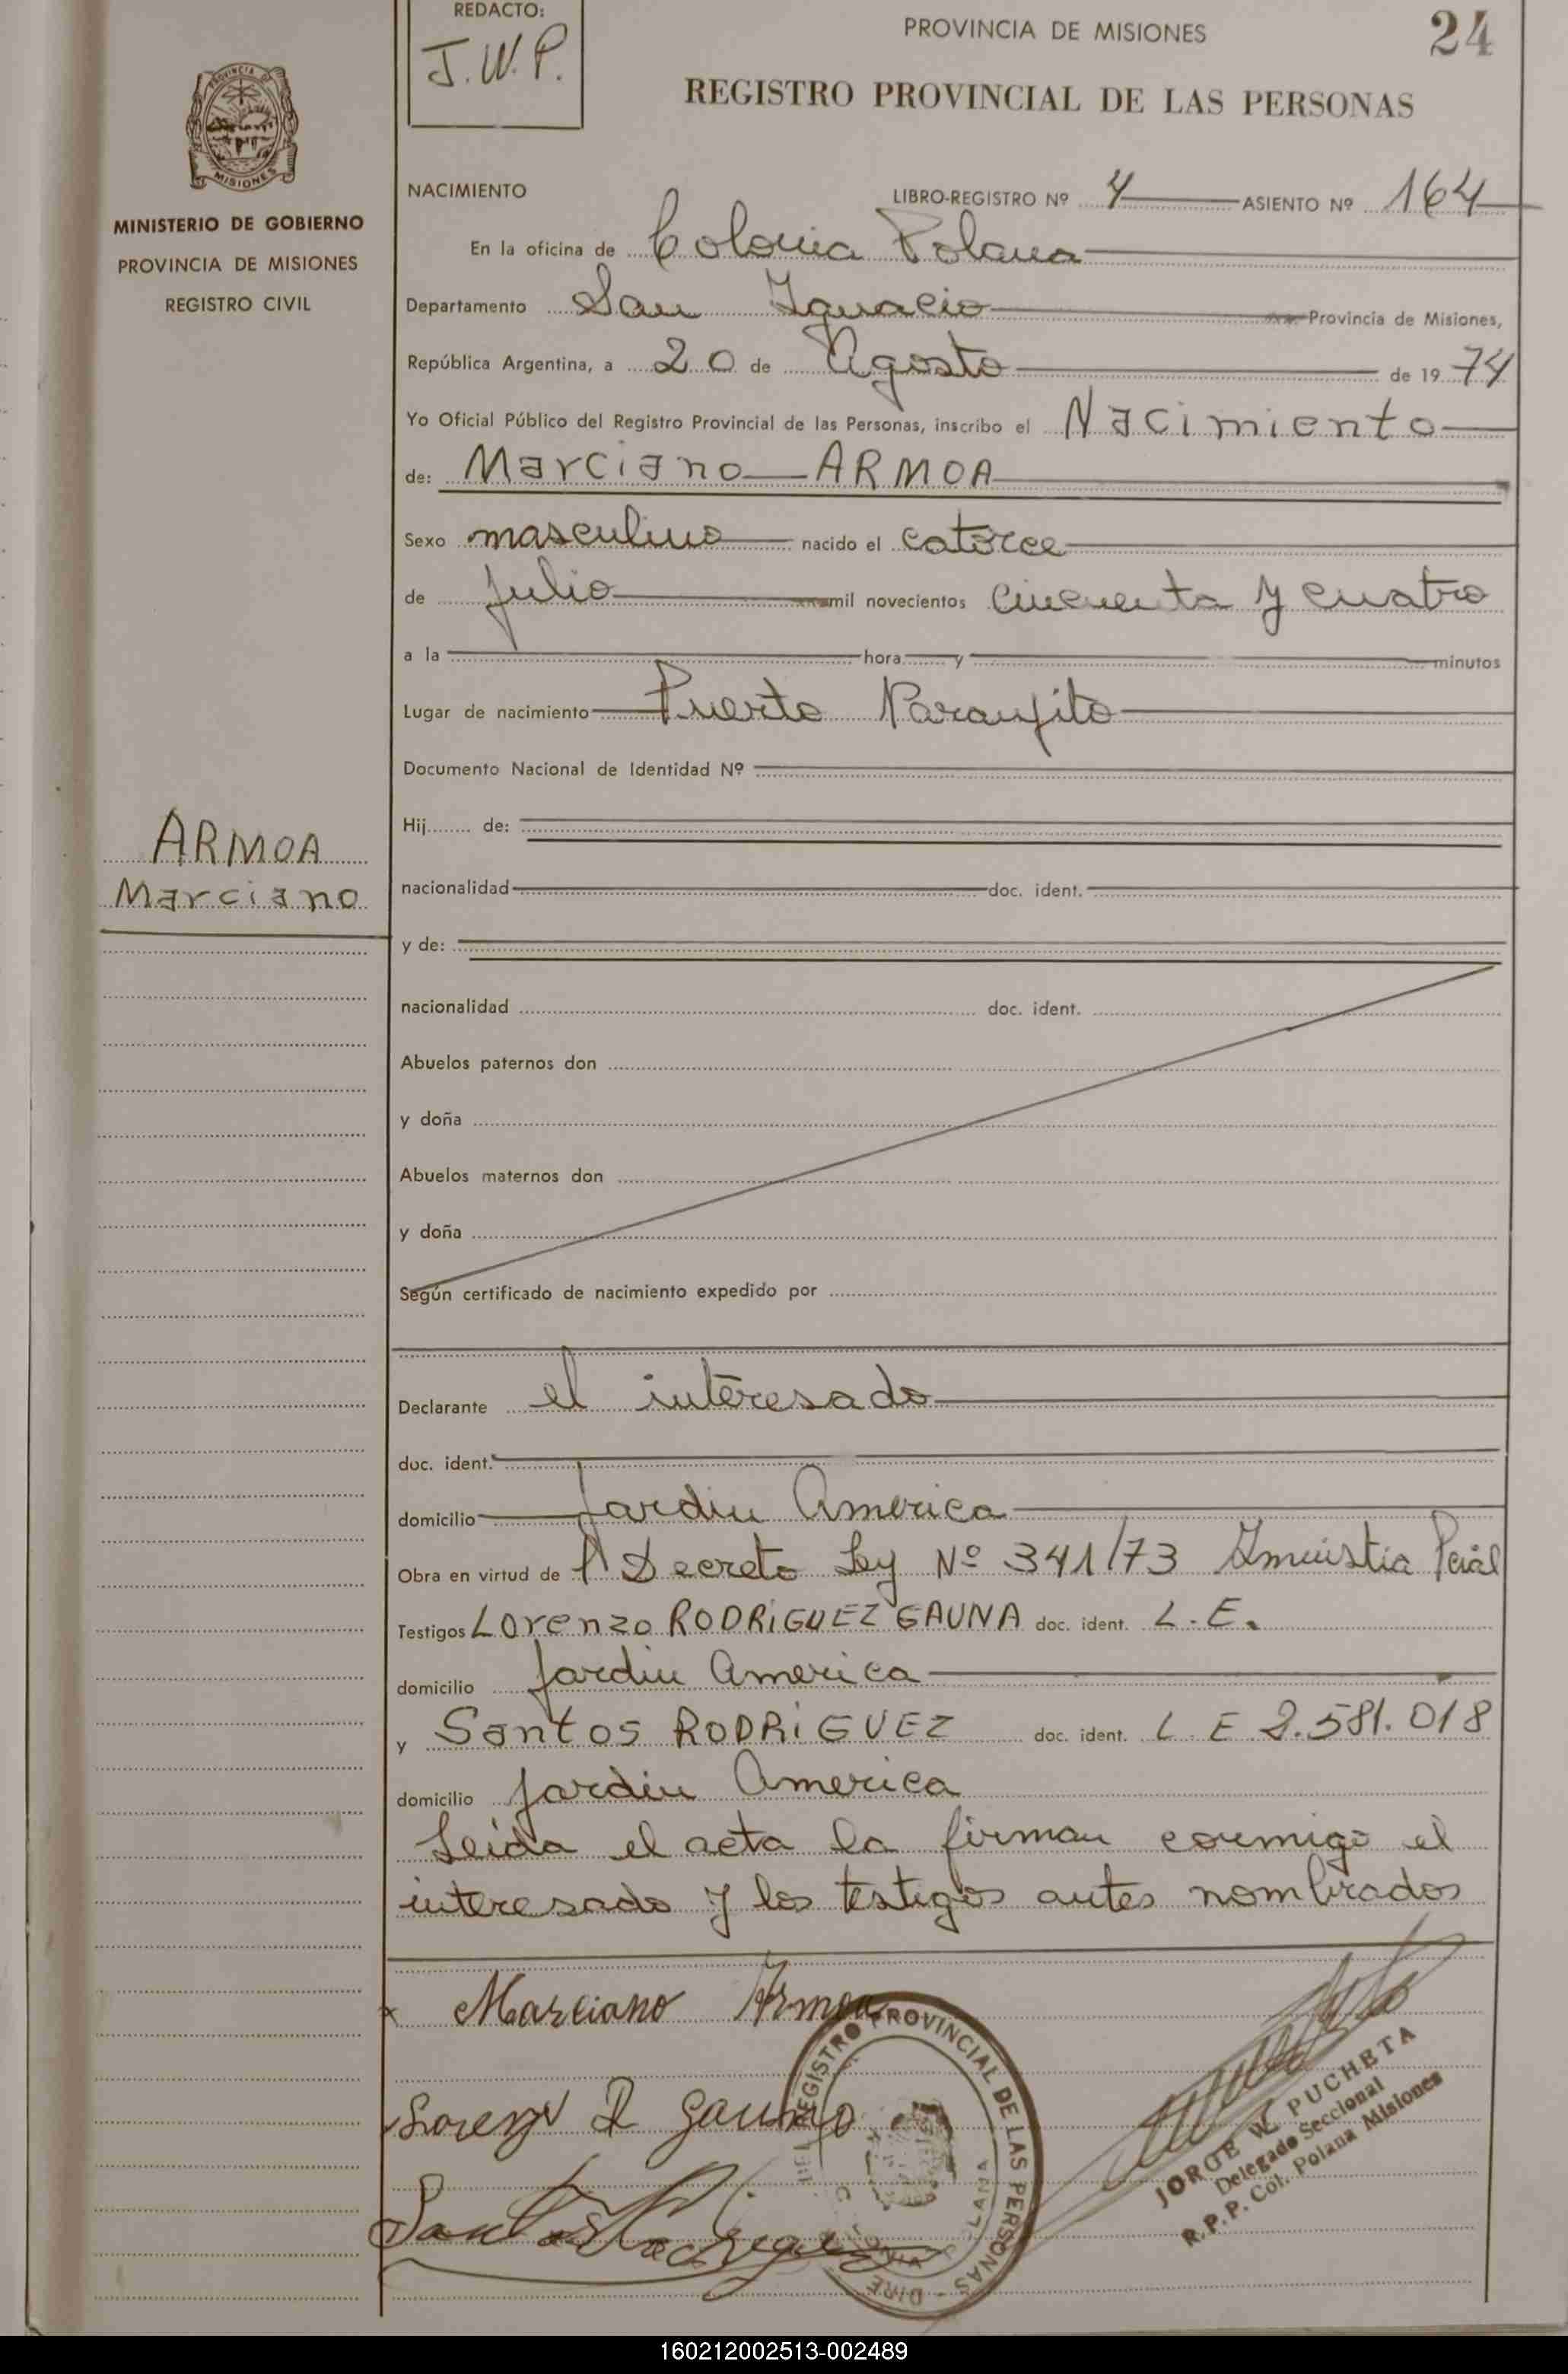 REDACTO:
J.W.P.
PROVINCIA DE MISIONES
24
REGISTRO PROVINCIAL DE LAS PERSONAS
PROVINCIA DE
MISIONES
MINISTERIO DE GOBIERNO
PROVINCIA DE MISIONES
REGISTRO CIVIL
NACIMIENTO LIBRO-REGISTRO Nº 4 ASIENTO Nº 164
En la oficina de Colonia Polana
Departamento San Ignacio Provincia de Misiones,
República Argentina, a 20 de Agosto de 1974
Yo Oficial Público del Registro Provincial de las Personas, inscribo el Nacimiento
de: Marciano ARMOA
Sexo masculino nacido el catorce
de julio mil novecientos cincuenta y cuatro
a la hora y minutos
Lugar de nacimiento Puerto Naranjito
Documento Nacional de Identidad Nº
Hij de:
ARMOA
Marciano
nacionalidad doc. ident.
y de:
nacionalidad doc. ident.
Abuelos paternos don
y doña
Abuelos maternos don
y doña
Según certificado de nacimiento expedido por
Declarante el interesado
doc. ident.
domicilio Jardin America
Obra en virtud de Decreto Ley Nº 341/73 Amnistia Pcial
Testigos Lorenzo RODRIGUEZ GAUNA doc. ident. L.E.
domicilio Jardin America
y Santos RODRIGUEZ doc. ident. L.E 2.581.018
domicilio Jardin America
Leida el acta la firman conmigo el
interesado y los testigos antes nombrados
x Marciano Armoa
REGISTRO PROVINCIAL DE LAS PERSONAS
Santos Rodriguez
JORGE W. PUCHETA
Delegado Seccional
R.P.P. Col. Polana Misiones
160212002513-002489